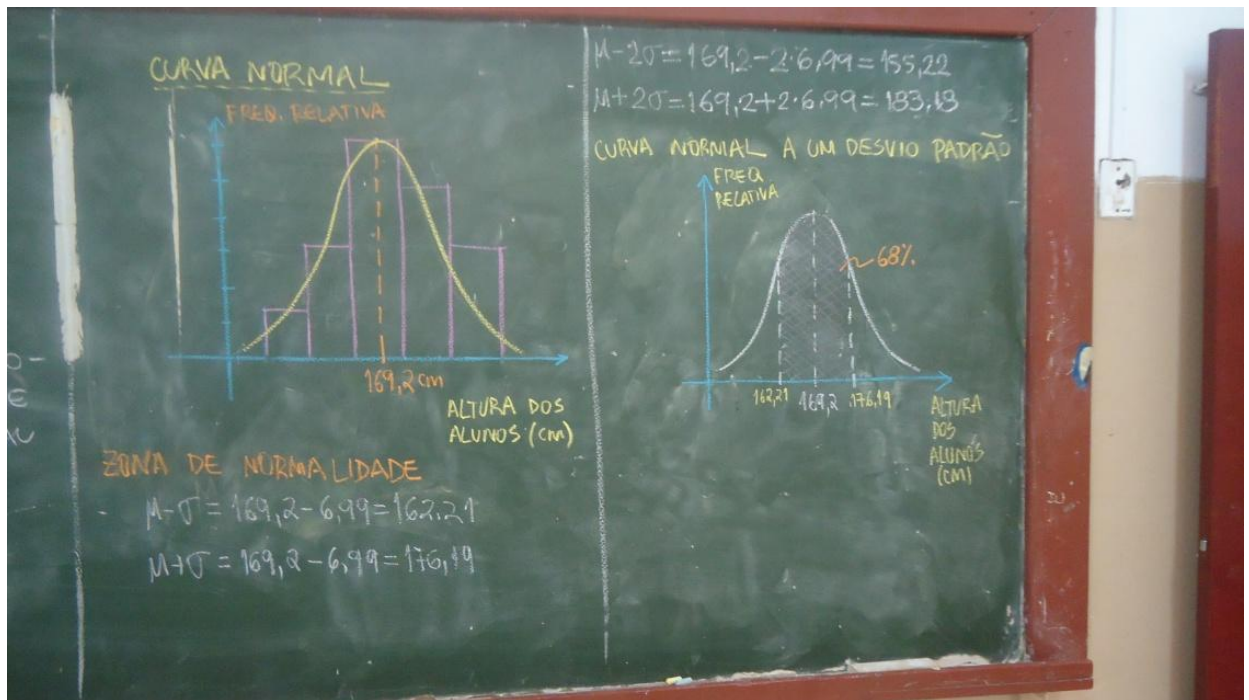 CURVA NORMAL
FREQ. RELATIVA
169,2 cm
ALTURA DOS
ALUNOS (CM)
ZONA DE NORMALIDADE
μ-σ = 169,2-6,99 = 162,21
μ+σ = 169,2-6,99 = 176,19
μ-2σ = 169,2-2·6,99 = 155,22
μ+2σ = 169,2+2·6,99 = 183,18
CURVA NORMAL A UM DESVIO PADRÃO
FREQ.
RELATIVA
68%
162,21 169,2 176,19
ALTURA
DOS
ALUNOS
(CM)